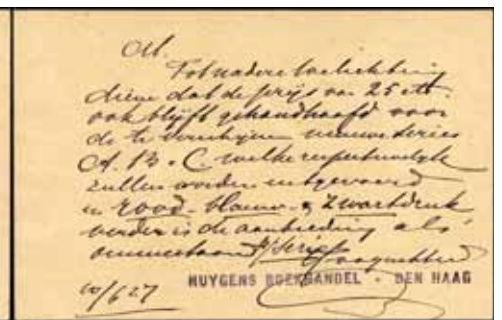 M.
Tot nadere toelichting
diene dat de prijs van 25 cts.
ook blijft gehandhaafd voor
de te verschijnen nieuwe series
A. B. C. welke respectievelijk
zullen worden uitgevoerd
in rood - blauw - & zwartdruk
verder is de aanbieding als
ommestaand p/serie
Hoogachtend
10/6 27 HUYGENS BOEKHANDEL - DEN HAAG